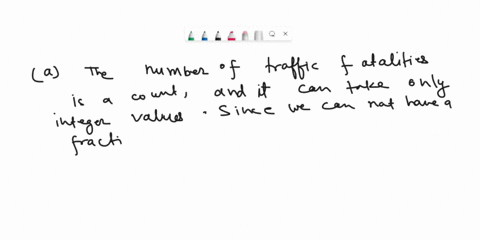 (a) The number of traffic fatalities
is a count, and it can take only
integer values. Since we can not have a
fracti